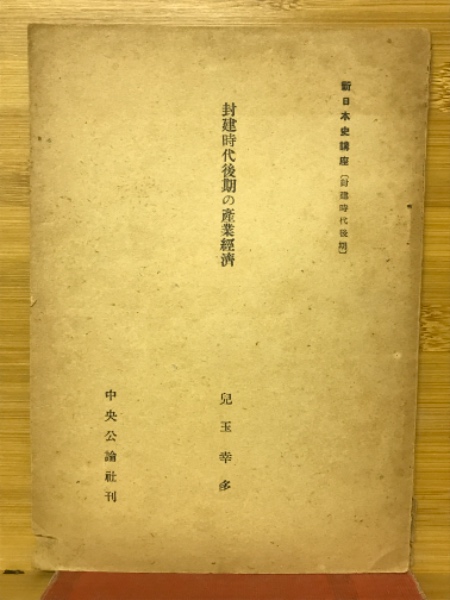 新日本史講座〔封建時代後期〕
封建時代後期の産業經濟
兒玉幸多
中央公論社刊